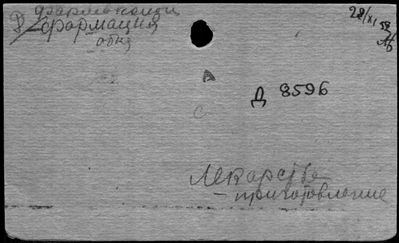 фармакопеи
Реформация
обн
28/XI 58
А
С
Д 8596
Лекарства
– приготовление